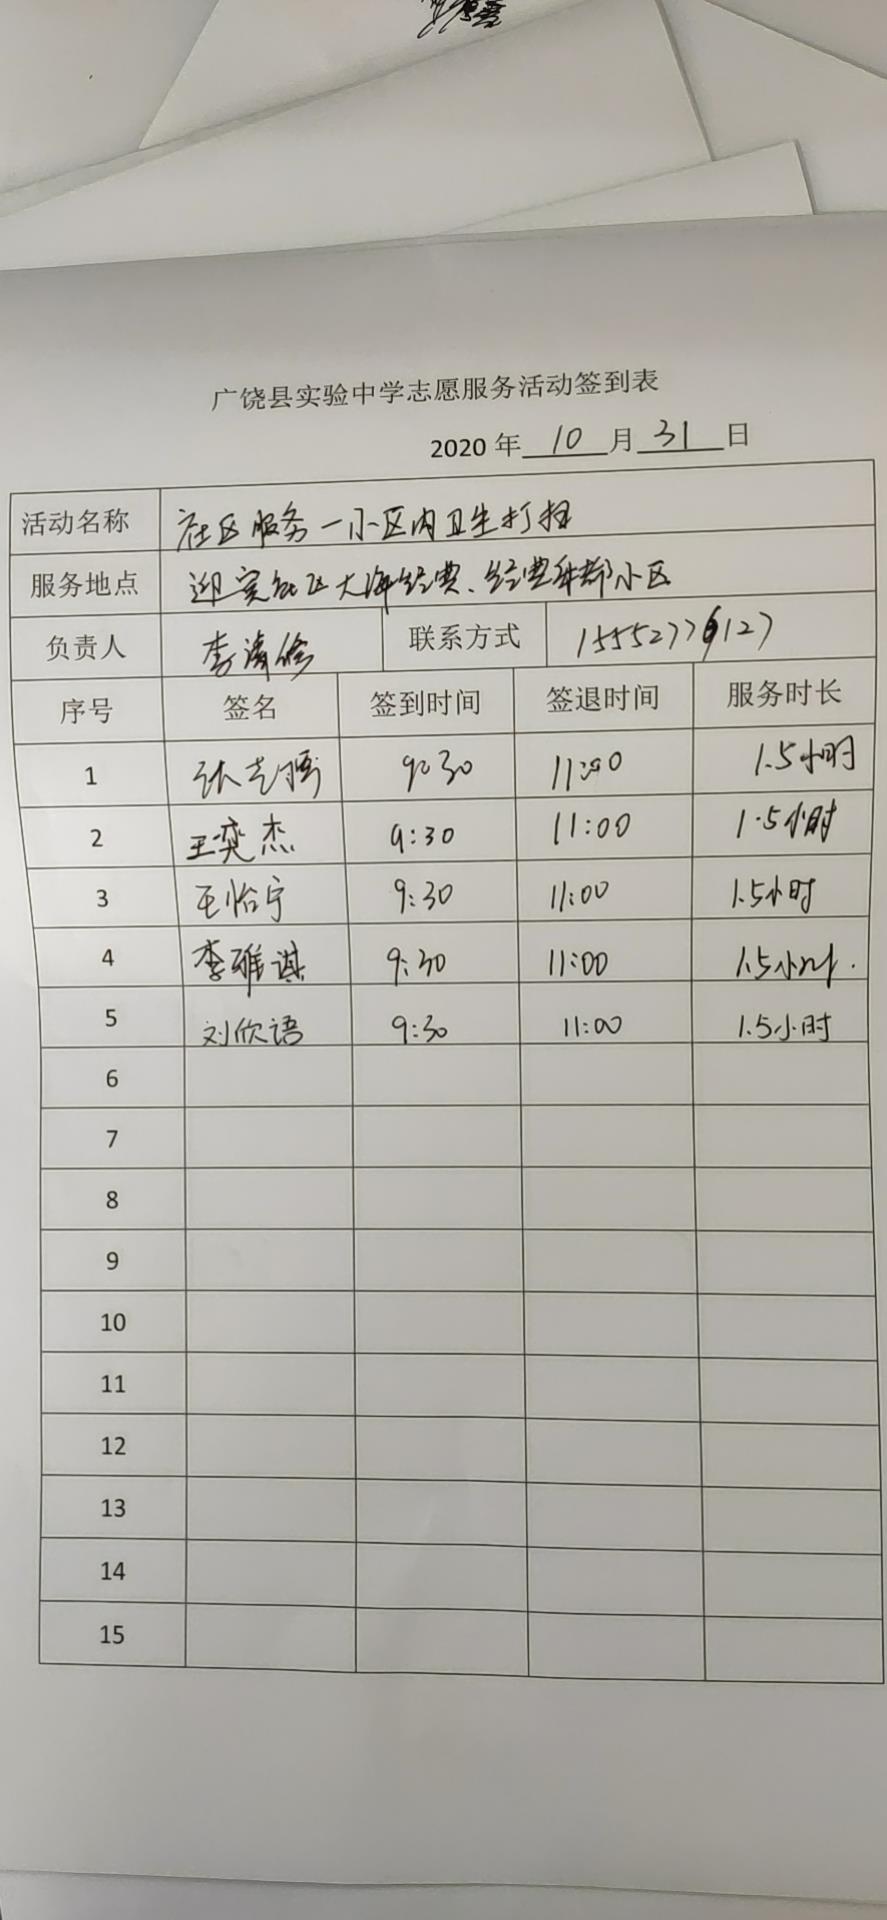 广饶县实验中学志愿服务活动签到表
2020 年 10 月 31 日
活动名称 社区服务一小区内卫生打扫
服务地点 迎宾社区大海经典、经典华都小区
负责人 李 联系方式
序号 签名 签到时间 签退时间 服务时长
1 张志 9:30 11:00 1.5小时
2 王奕杰 9:30 11:00 1.5小时
3 王怡宁 9:30 11:00 1.5小时
4 李雅淇 9:30 11:00 1.5小时.
5 刘欣语 9:30 11:00 1.5小时
6
7
8
9
10
11
12
13
14
15